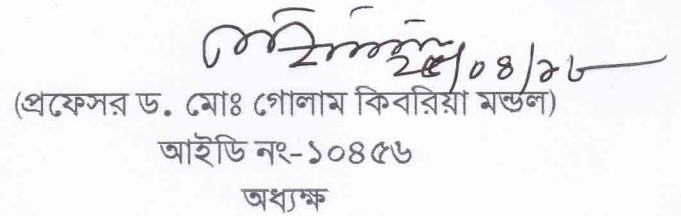 (প্রফেসর ড. মোঃ গোলাম কিবরিয়া মন্ডল)
আইডি নং-১০৪৫৬
অধ্যক্ষ